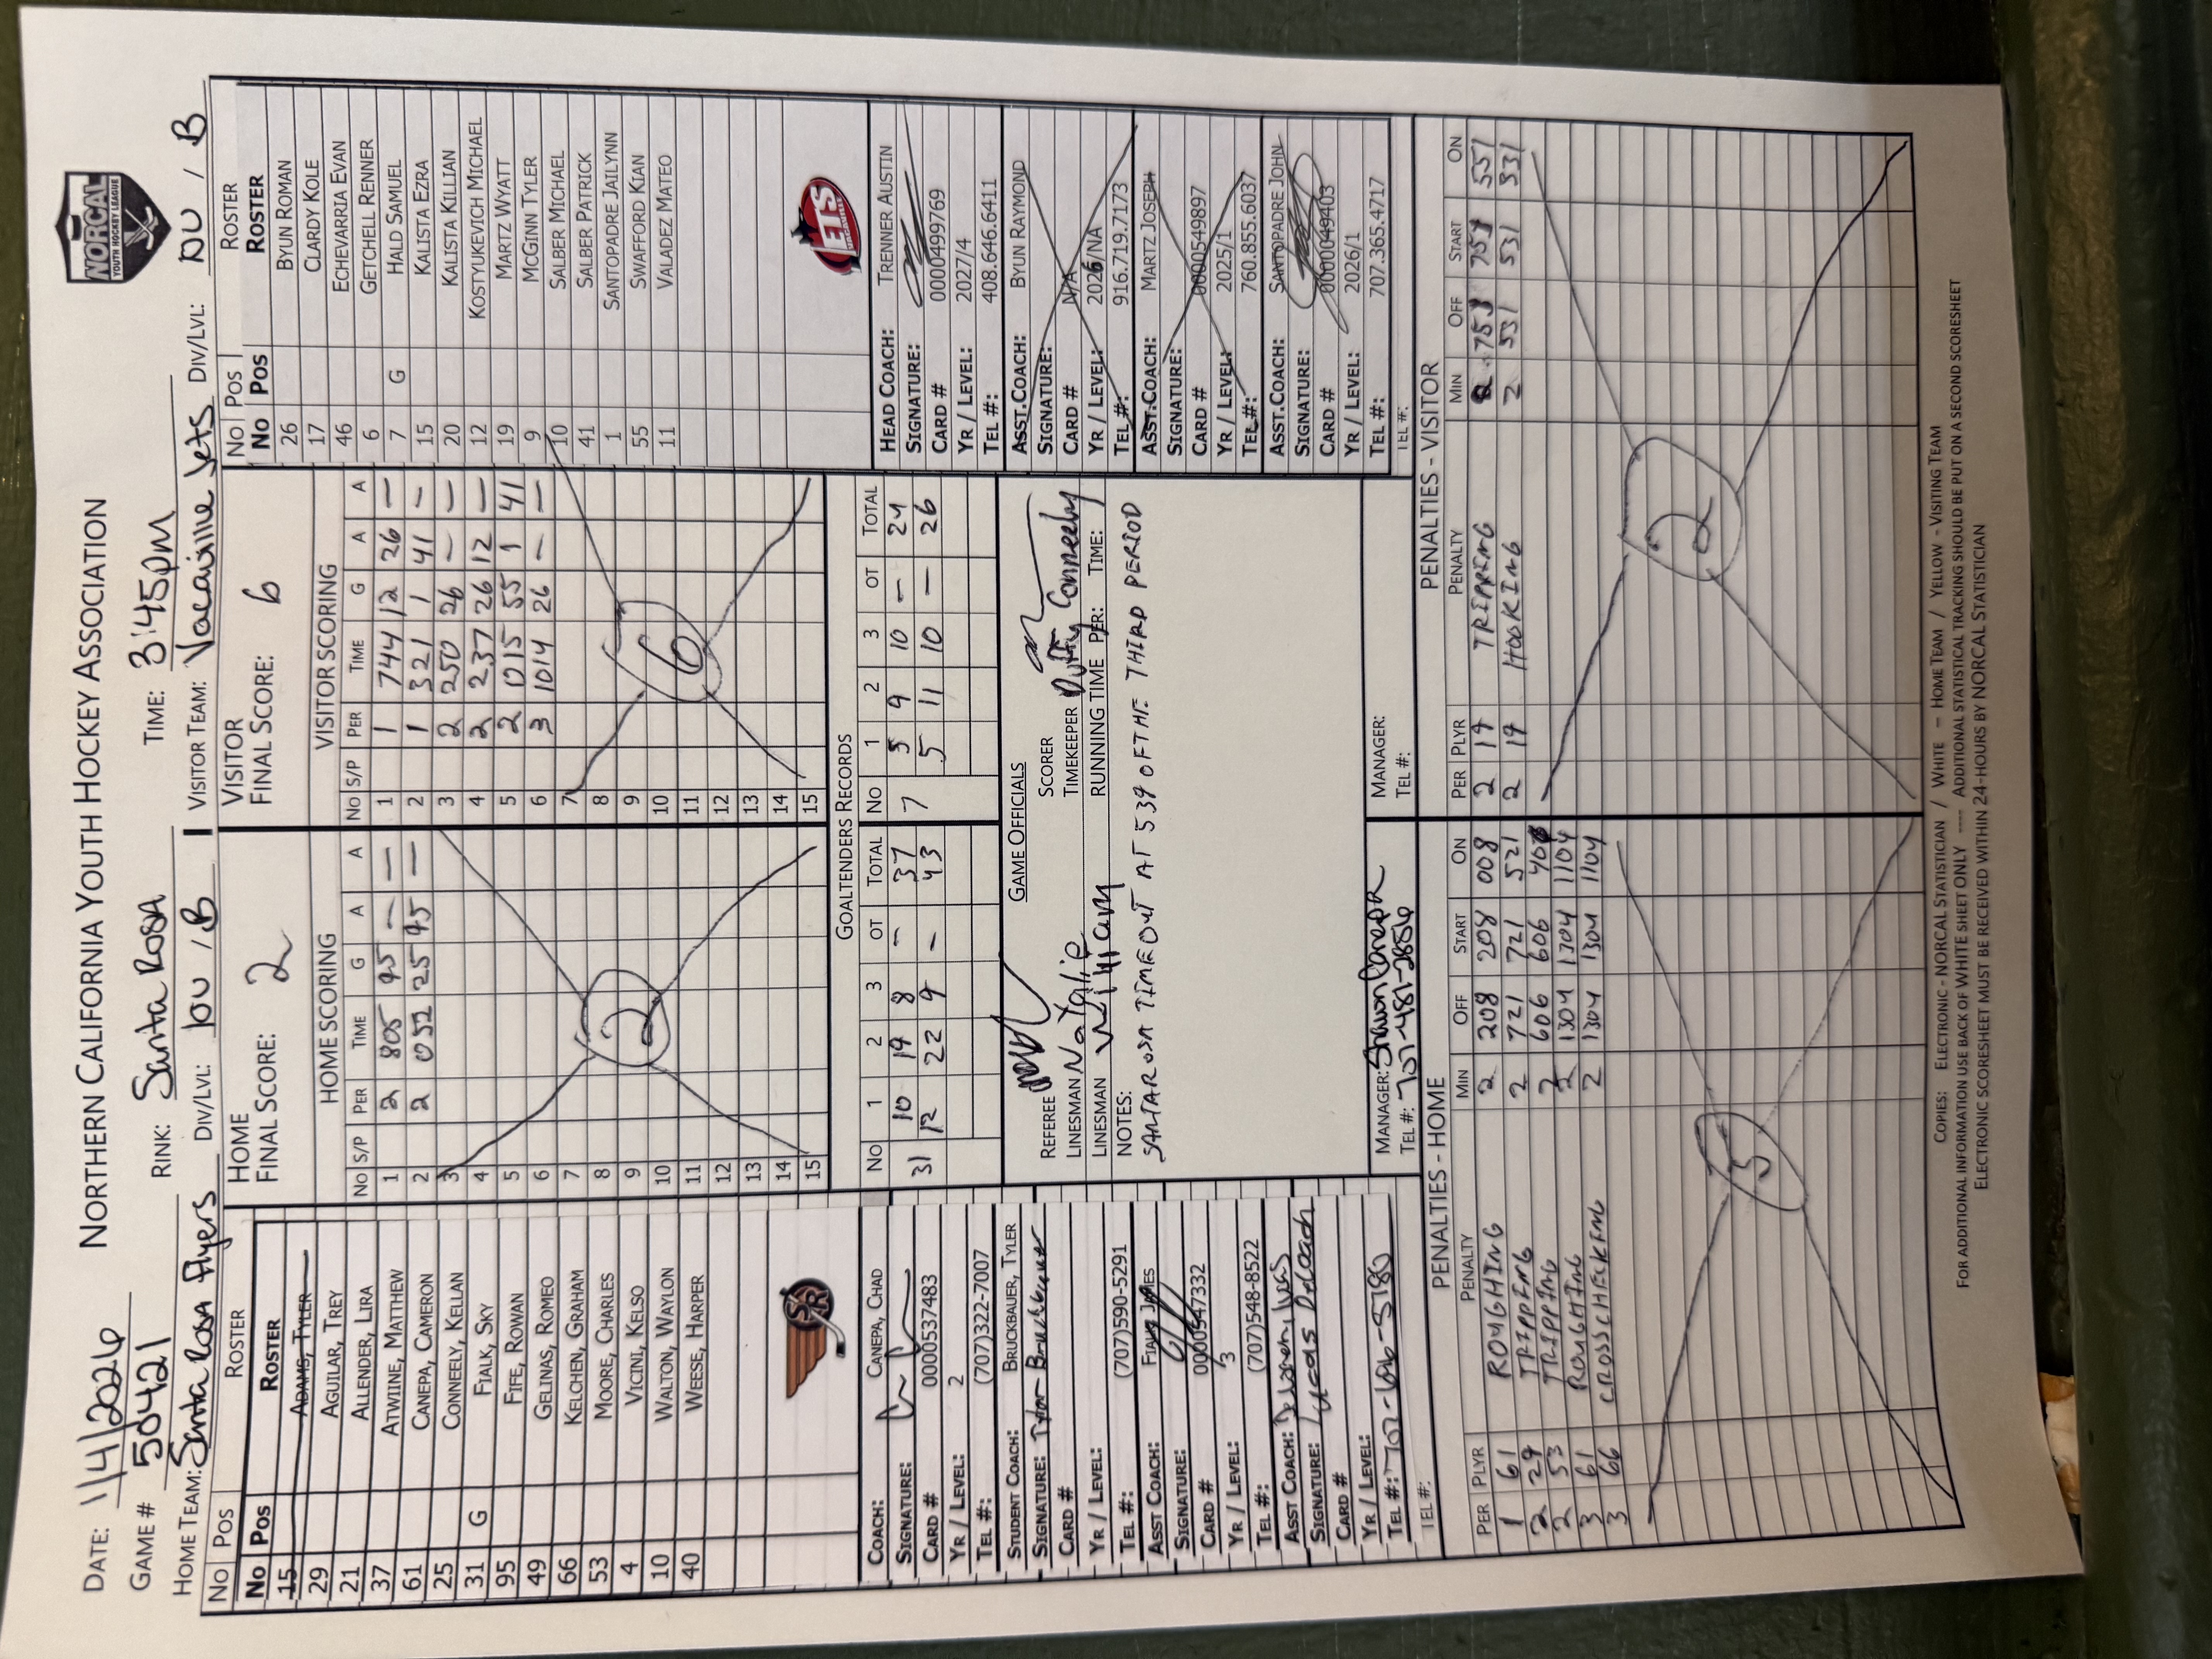 DATE: 1/4/2026 NORTHERN CALIFORNIA YOUTH HOCKEY ASSOCIATION
NORCAL
YOUTH HOCKEY LEAGUE
GAME # 50421 RINK: Santa Rosa TIME: 3:45pm
HOME TEAM: Santa Rosa Flyers DIV/LVL: 10U / B VISITOR TEAM: Vacaville Jets DIV/LVL: 10U / B
No Pos ROSTER
No Pos ROSTER
15 ADAMS, TYLER
29 AGUILAR, TREY
21 ALLENDER, LIRA
37 ATWIINE, MATTHEW
61 CANEPA, CAMERON
25 CONNEELY, KELLAN
31 G FIALK, SKY
95 FIFE, ROWAN
49 GELINAS, ROMEO
66 KELCHEN, GRAHAM
53 MOORE, CHARLES
4 VICINI, KELSO
10 WALTON, WAYLON
40 WEESE, HARPER
SR
HOME
FINAL SCORE: 2
HOME SCORING
No S/P PER TIME G A A
1 2 805 95 — —
2 2 052 25 95 —
3
4
5
6
7
8
9
10
11
12
13
14
15
2
VISITOR
FINAL SCORE: 6
VISITOR SCORING
No S/P PER TIME G A A
1 1 744 12 26 —
2 1 321 1 41 —
3 2 250 26 — —
4 2 237 26 12 —
5 2 1015 55 1 41
6 3 1014 26 — —
7
8
9
10
11
12
13
14
15
6
No Pos ROSTER
No Pos ROSTER
26 BYUN ROMAN
17 CLARDY KOLE
46 ECHEVARRIA EVAN
6 GETCHELL RENNER
7 G HALD SAMUEL
15 KALISTA EZRA
20 KALISTA KILLIAN
12 KOSTYUKEVICH MICHAEL
19 MARTZ WYATT
9 MCGINN TYLER
10 SALBER MICHAEL
41 SALBER PATRICK
1 SANTOPADRE JAILYNN
55 SWAFFORD KIAN
11 VALADEZ MATEO
JETS
COACH: CANEPA, CHAD
SIGNATURE:
CARD # 0000537483
YR / LEVEL: 2
TEL #: (707)322-7007
STUDENT COACH: BRUCKBAUER, TYLER
SIGNATURE: Tyler Bruckbauer
CARD #
YR / LEVEL:
TEL #: (707)590-5291
ASST COACH: FIALK, JAMES
SIGNATURE:
CARD # 0000547332
YR / LEVEL: 3
TEL #: (707)548-8522
ASST COACH:
SIGNATURE: Lucas DeLoach
CARD #
YR / LEVEL:
TEL #: 707-696-5180
TEL #:
GOALTENDERS RECORDS
No 1 2 3 OT TOTAL No 1 2 3 OT TOTAL
31 10 19 8 — 37 7 5 9 10 — 24
12 22 9 — 43 5 11 10 — 26
GAME OFFICIALS
REFEREE SCORER
LINESMAN Natalie TIMEKEEPER Duffy Conneely
LINESMAN William RUNNING TIME PER: TIME:
NOTES:
SANTA ROSA TIMEOUT AT 539 OF THE THIRD PERIOD
MANAGER: Shawn Canepa MANAGER:
TEL #: 707-481-2886 TEL #:
HEAD COACH: TRENNER AUSTIN
SIGNATURE:
CARD # 0000499769
YR / LEVEL: 2027/4
TEL #: 408.646.6411
ASST.COACH: BYUN RAYMOND
SIGNATURE:
CARD # N/A
YR / LEVEL: 2026/NA
TEL #: 916.719.7173
ASST.COACH: MARTZ JOSEPH
SIGNATURE:
CARD # 0000549897
YR / LEVEL: 2025/1
TEL #: 760.855.6037
ASST.COACH: SANTOPADRE JOHN
SIGNATURE:
CARD # 0000049403
YR / LEVEL: 2026/1
TEL #: 707.365.4717
TEL #:
PENALTIES - HOME
PER PLYR PENALTY MIN OFF START ON
1 61 ROUGHING 2 208 208 008
2 29 TRIPPING 2 721 721 521
2 53 TRIPPING 2 606 606 406
3 61 ROUGHING 2 1304 1304 1104
3 66 CROSSCHECKING 2 1304 1304 1104
5
PENALTIES - VISITOR
PER PLYR PENALTY MIN OFF START ON
2 19 TRIPPING 2 751 751 551
2 19 HOOKING 2 531 531 331
2
COPIES: ELECTRONIC - NORCAL STATISTICIAN / WHITE — HOME TEAM / YELLOW - VISITING TEAM
FOR ADDITIONAL INFORMATION USE BACK OF WHITE SHEET ONLY ---- ADDITIONAL STATISTICAL TRACKING SHOULD BE PUT ON A SECOND SCORESHEET
ELECTRONIC SCORESHEET MUST BE RECEIVED WITHIN 24-HOURS BY NORCAL STATISTICIAN